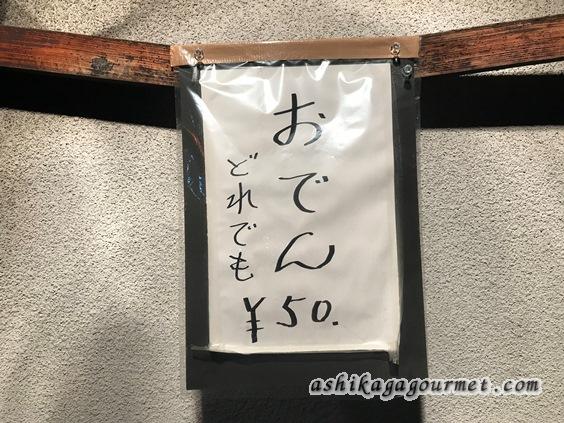 おでん
どれでも
¥50.
ashikagagourmet.com